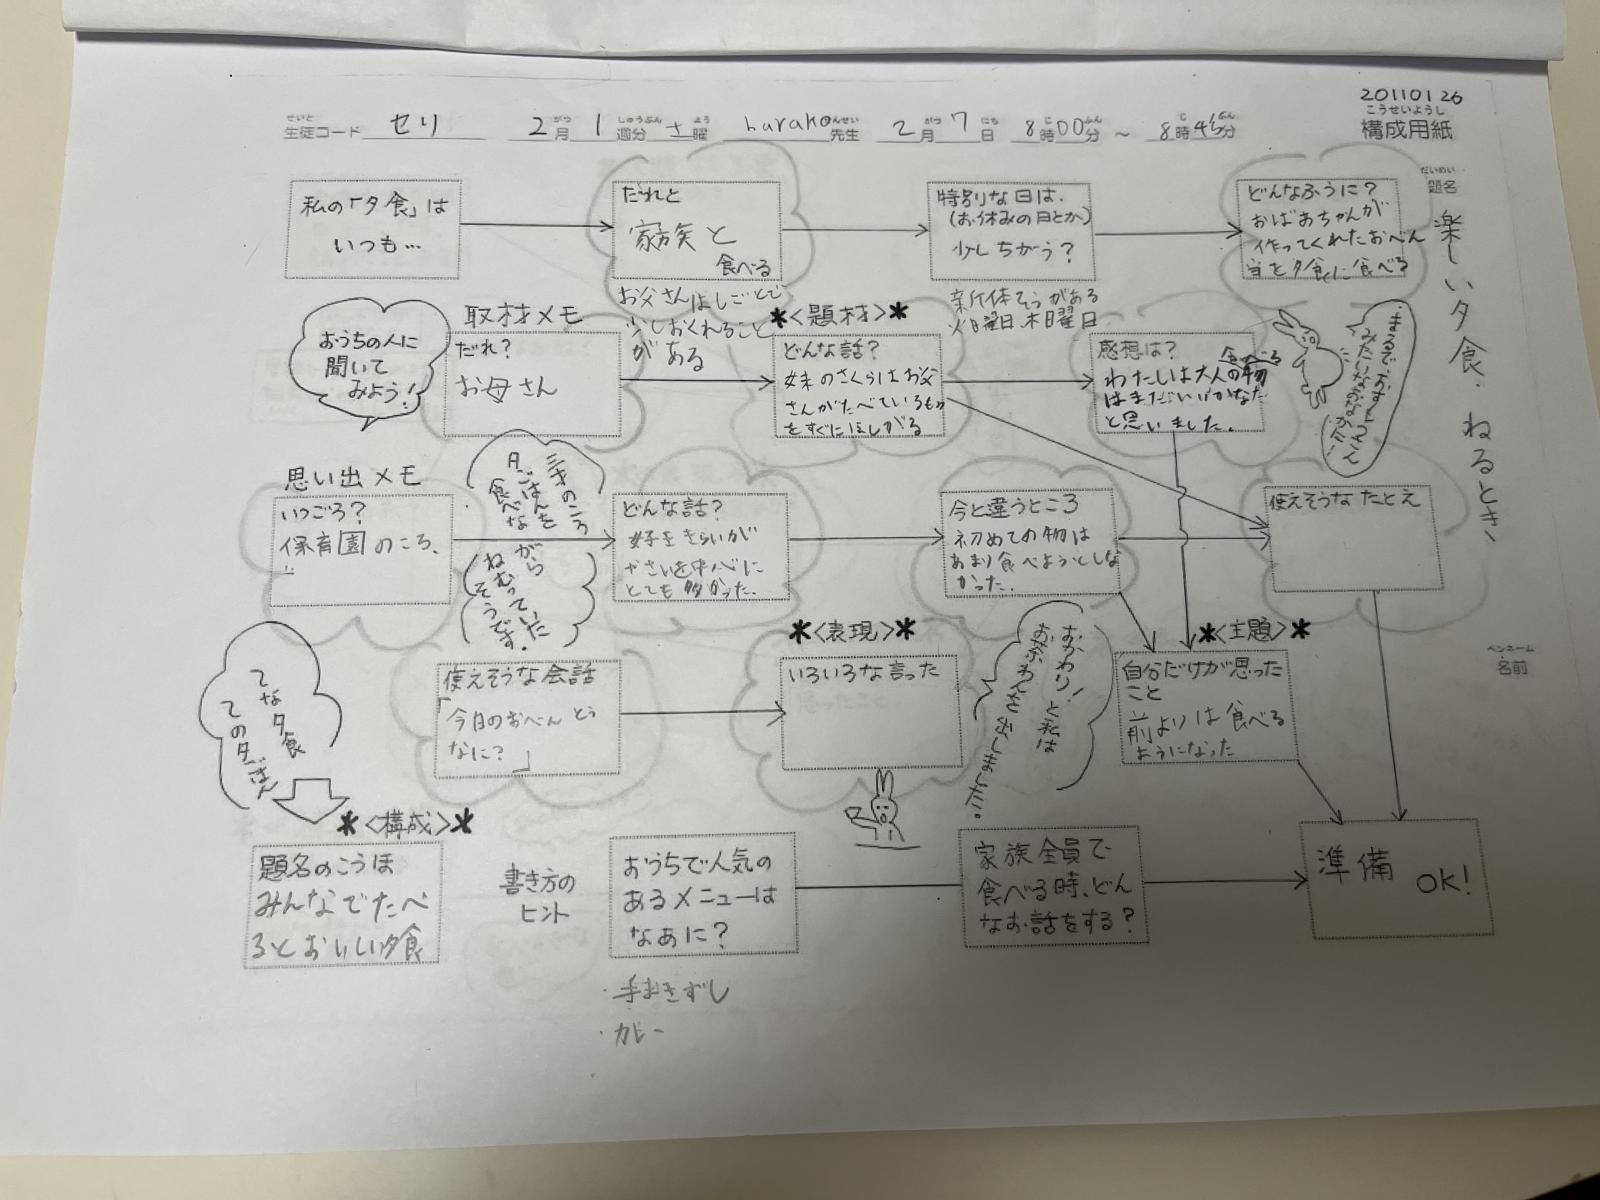 20110126
こうせいようし
構成用紙
せいと
生徒コード セリ 2月 1週分 土曜 hurako先生 2月7日 8時00分 ~ 8時45分
だいめい
題名
楽しい夕食・ねるとき、
ペンネーム
名前
私の「夕食」は
いつも…
だれと
家族と
食べる
お父さんはしごとで
少しおくれること
がある
特別な日は、
(お休みの日とか)
少しちがう?
新体そうがある
火曜日、木曜日
どんなふうに?
おばあちゃんが
作ってくれたおべん
当を夕食に食べる
おうちの人に
聞いて
みよう!
取材メモ
だれ?
お母さん
*<題材>*
どんな話?
妹のさくらはお父
さんがたべているもの
をすぐにほしがる
感想は?
わたしは大人の食べる物
はまだいいかなた
と思いました。
まるで、おすもうさん
みたいなおなかだ!
思い出メモ
いつごろ?
保育園のころ、
三才のころ
夕ごはんを
食べな
がら
ねむっていた
そうです。
どんな話?
好ききらいが
やさいを中心に
とても多かった。
今と違うところ
初めての物は
あまり食べようとしな
かった。
使えそうなたとえ
使えそうな会話
「今日のおべんとう
なに?」
*<表現>*
いろいろな言った
おおわり!と私は
おちゃわんを出しました。
*<主題>*
自分だけが思った
こと
前よりは食べる
ようになった
てな夕食
ての夕ごはん
*<構成>*
題名のこうほ
みんなでたべ
るとおいしい夕食
書き方の
ヒント
おうちで人気の
あるメニューは
なあに?
・手まきずし
・カレー
家族全員で
食べる時、どん
なお話をする?
準備 OK!